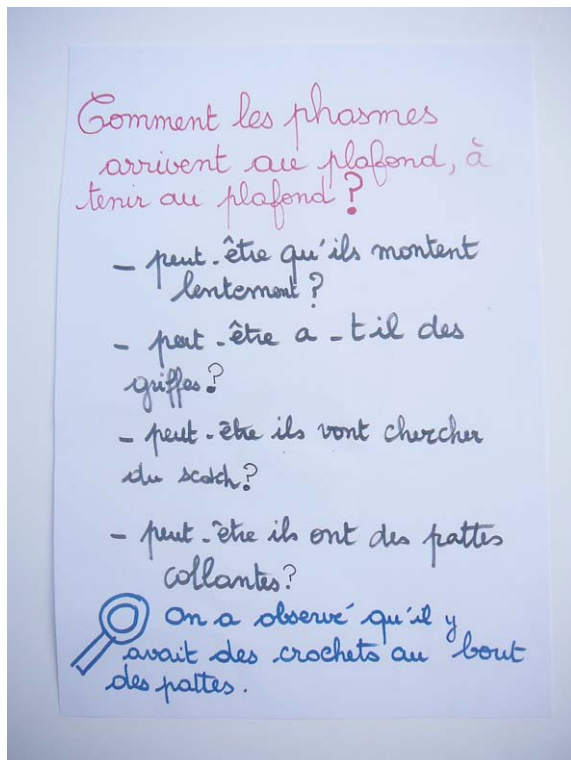 Comment les phasmes
arrivent au plafond, à
tenir au plafond ?
- peut-être qu'ils montent
lentement ?
- peut-être a-t il des
griffes ?
- peut-être ils vont chercher
du scotch ?
- peut-être ils ont des pattes
collantes ?
On a observé qu'il y
avait des crochets au bout
des pattes.